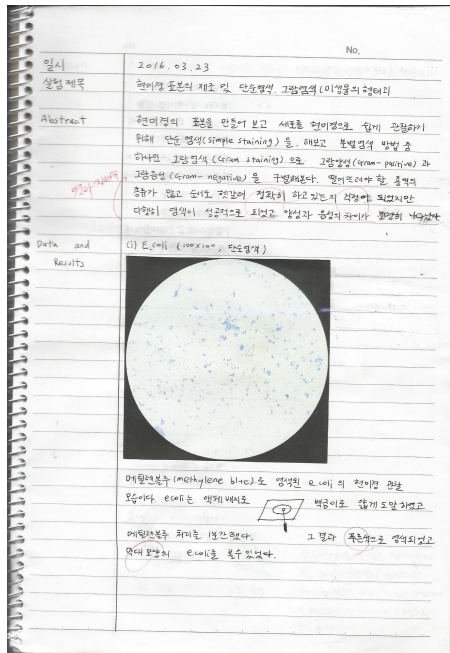 No.
일시 2016. 03. 23
실험 제목 현미경 표본의 제조 및 단순염색, 그람염색 (미생물의 형태)
Abstract 현미경의 표본을 만들어 보고 세포를 현미경으로 쉽게 관찰하기
위해 단순 염색 (Simple staining)을 해보고 분별염색 방법 중
하나인 그람염색 (Gram staining)으로 그람양성 (Gram-positive)과
그람음성 (Gram-negative)을 구별해본다. 떨어뜨려야 할 용액의
종류가 많고 순서도 헷갈려 정확히 하고 있는지 걱정이 되었지만
다행히 염색이 성공적으로 되었고 양성과 음성의 차이가 분명히 나타났다
Data and Results (i) E.coli (100×100, 단순염색)
메틸렌블루 (methylene blue)로 염색된 e.coli의 현미경 관찰
모습이다. e.coli는 액체배지로 백금이로 얇게 도말하였고
메틸렌블루 처리를 1분간했다. 그 결과 푸른색으로 염색되었고
막대 모양의 e.coli를 볼수 있었다.